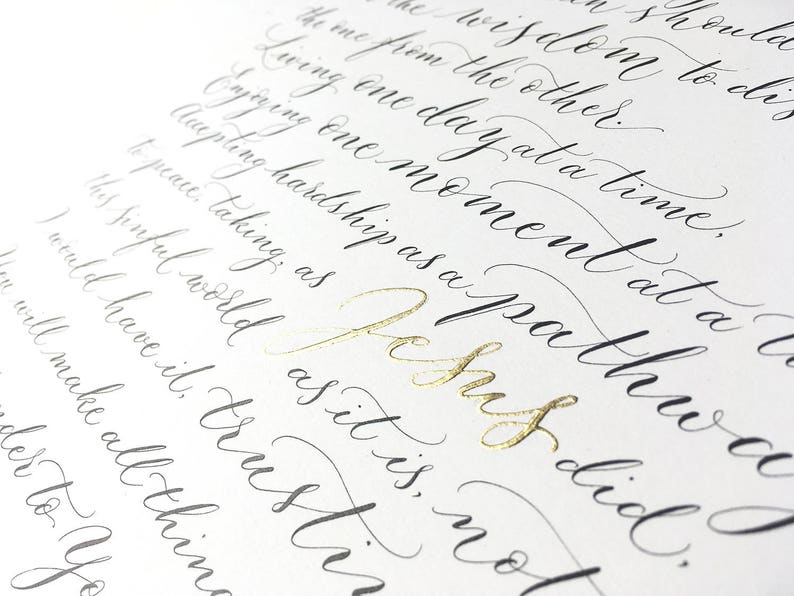 should
the wisdom to dis
the one from the other.
Living one day at a time,
Enjoying one moment at a t
Accepting hardship as a pathway
to peace, taking, as Jesus did,
this sinful world as it is, not
I would have it, trustin
You will make all thing
nder to Yo